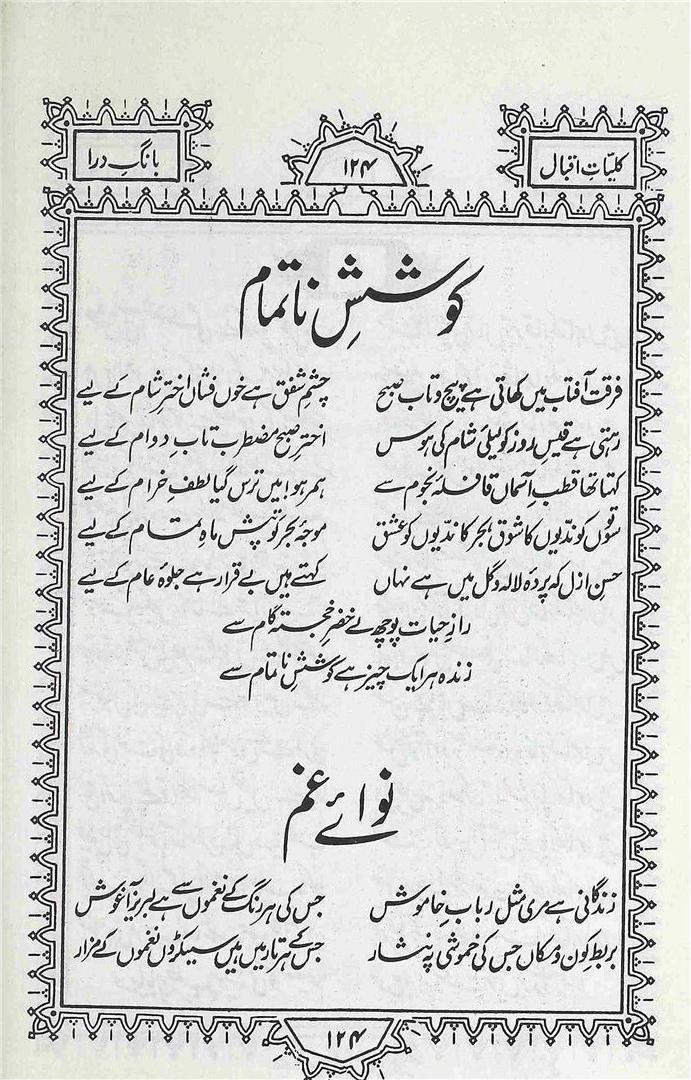 کلیاتِ اقبال
۱۲۴
بانگِ درا
کوششِ ناتمام
فرقتِ آفتاب میں کھاتی ہے پیچ و تاب صبح چشمِ شفق ہے خوں فشاں اخترِ شام کے لیے
رہتی ہے قیسِ روز کو لیلیِٔ شام کی ہوس اخترِ صبح مضطرب تابِ دوام کے لیے
کہتا تھا قطبِ آسماں قافلۂ نجوم سے ہمرہو! میں ترس گیا لطفِ خرام کے لیے
سوتوں کو ندّیوں کا شوق، بحر کا ندّیوں کو عشق موجۂ بحر کو تپش ماہِ تمام کے لیے
حسنِ ازل کہ پردۂ لالہ و گل میں ہے نہاں کہتے ہیں بے قرار ہے جلوۂ عام کے لیے
رازِ حیات پوچھ لے خضرِ خجستہ گام سے
زندہ ہر ایک چیز ہے کوششِ ناتمام سے
نوائے غم
زندگانی ہے مری مثلِ ربابِ خاموش جس کی ہر رنگ کے نغموں سے ہے لبریز آغوش
بربطِ کون و مکاں جس کی خموشی پہ نثار جس کے ہر تار میں ہیں سیکڑوں نغموں کے مزار
۱۲۴